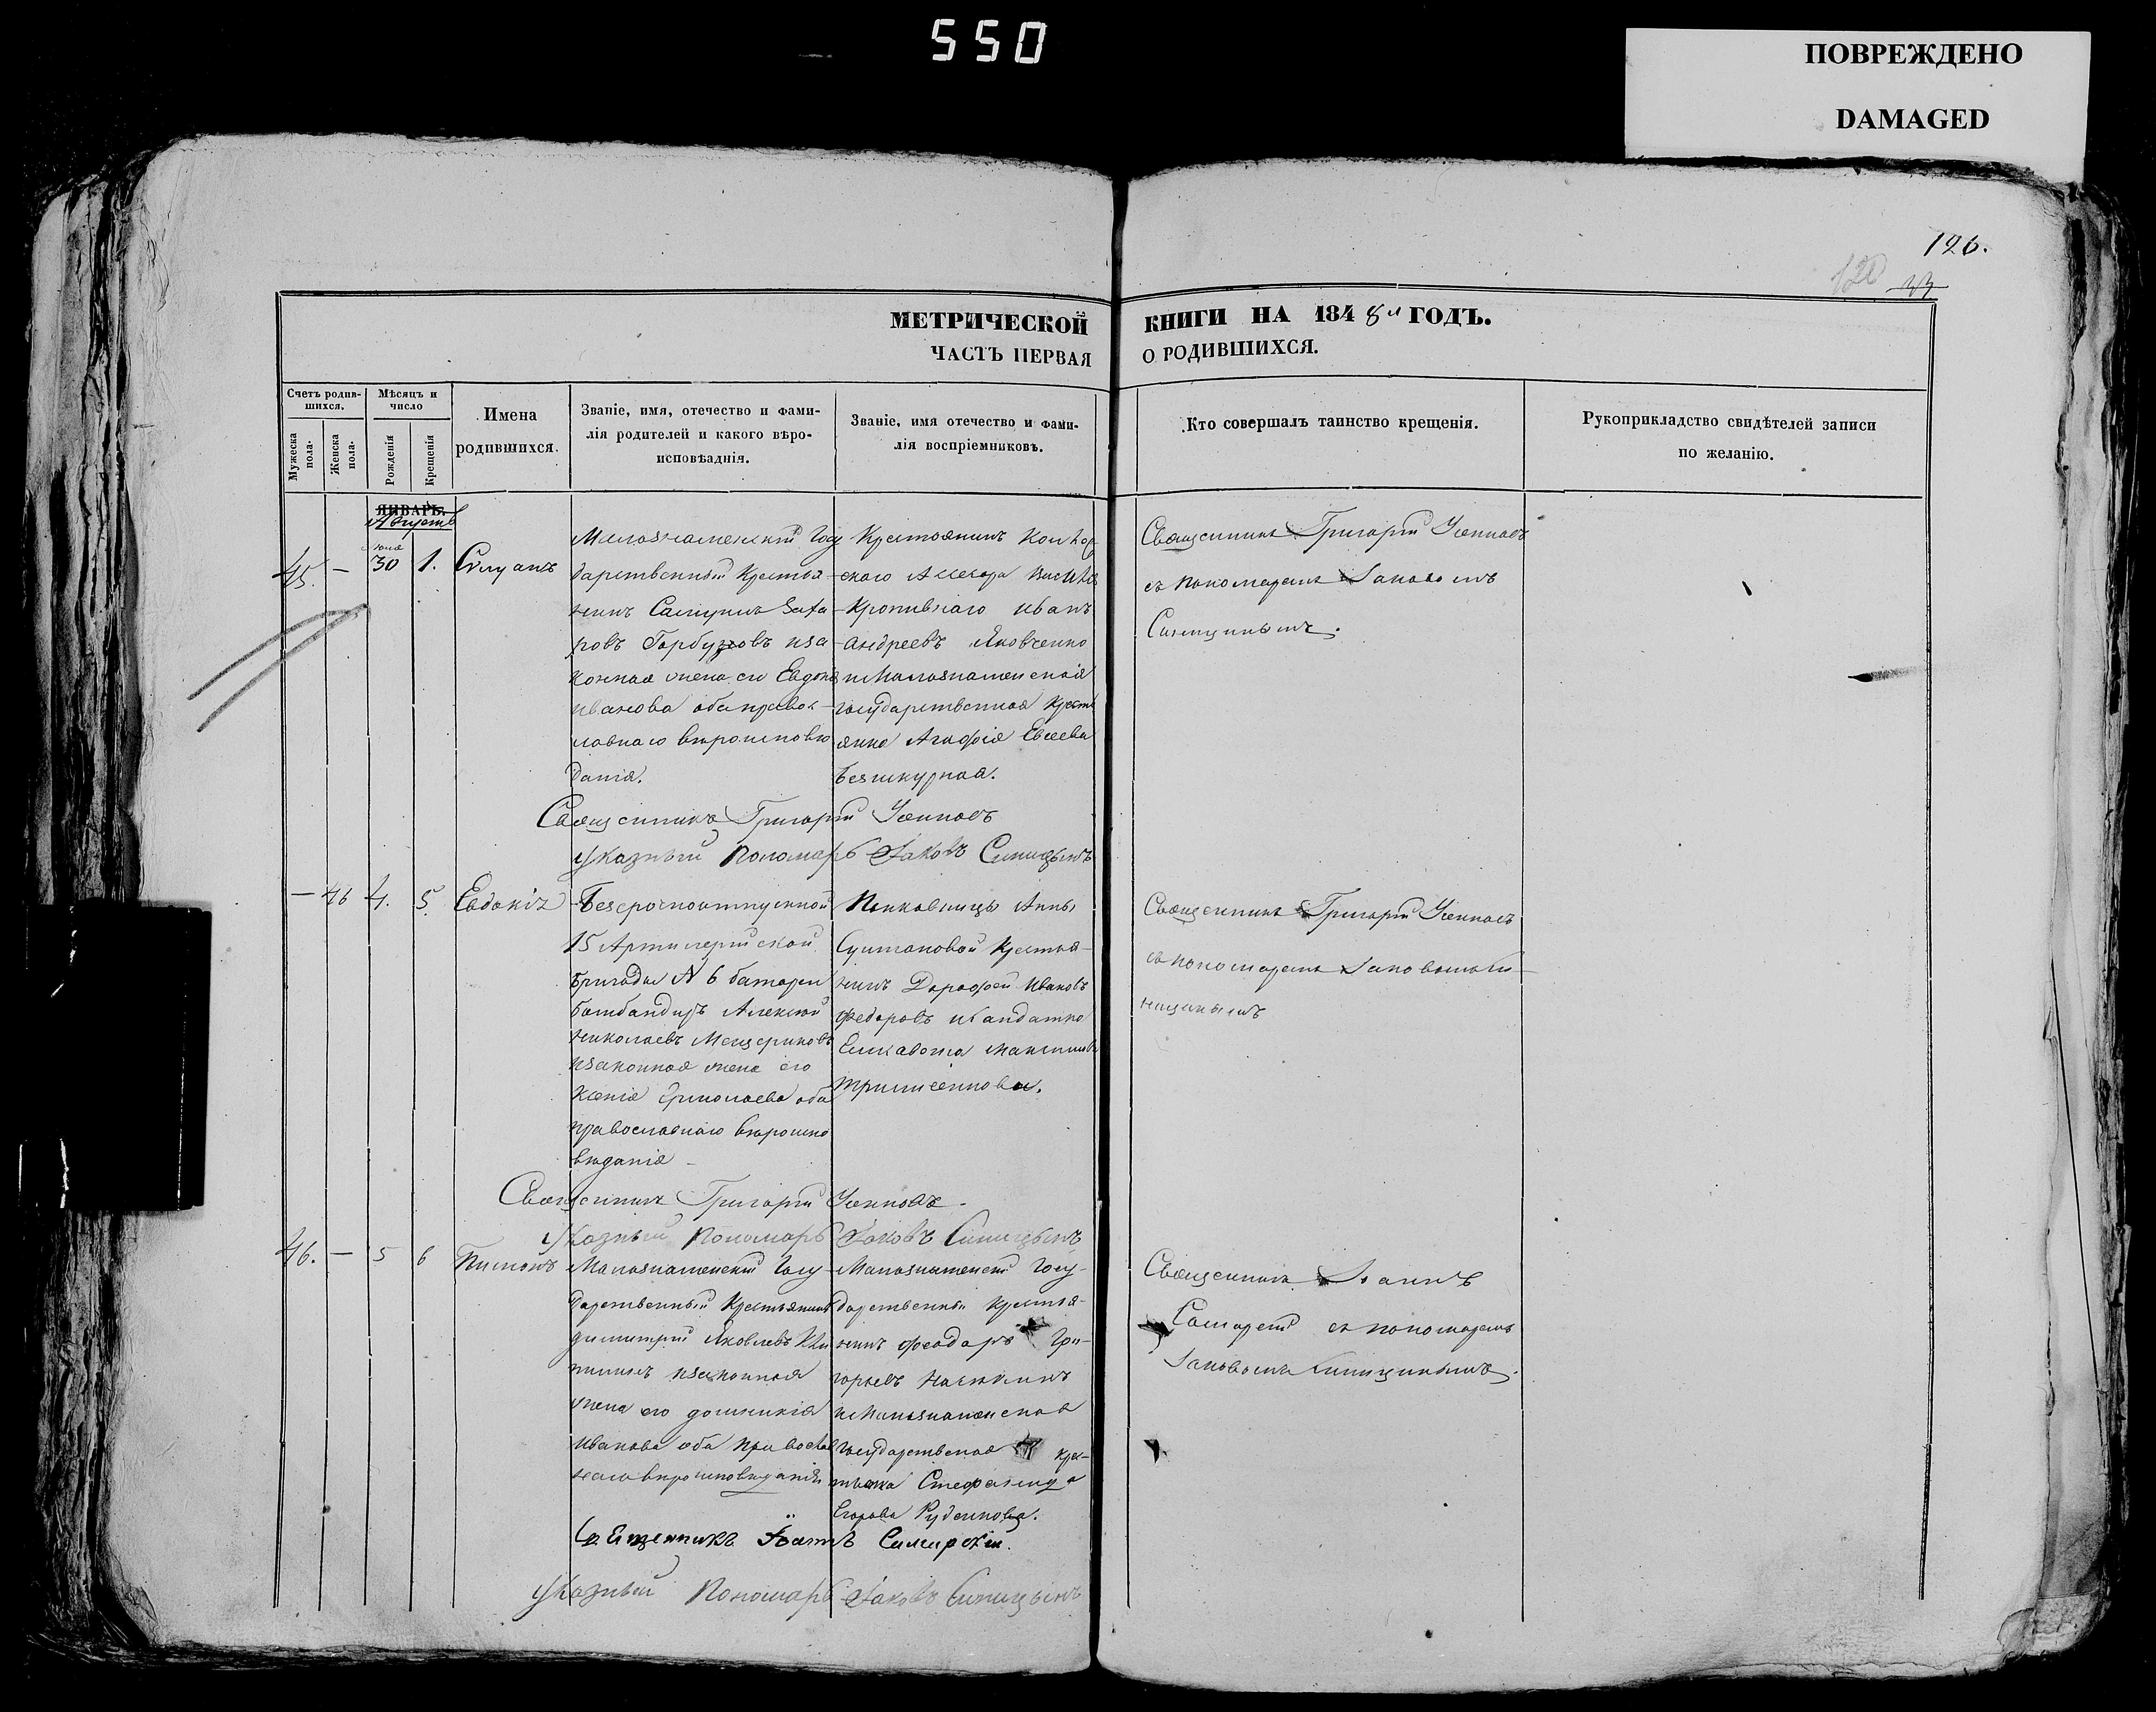 550
ПОВРЕЖДЕНО
DAMAGED
126.
120
МЕТРИЧЕСКОЙ КНИГИ НА 1848й ГОДЪ.
ЧАСТЬ ПЕРВАЯ О РОДИВШИХСЯ.
Счетъ родив-
шихся.
Мужеска пола.
Женска пола.
Мѣсяцъ и
число
Рожденія
Крещенія
Имена
родившихся.
Званіе, имя, отечество и фами-
лія родителей и какого вѣро-
исповѣаднія.
Званіе, имя отечество и фами-
лія воспріемниковъ.
Кто совершалъ таинство крещенія.
Рукоприкладство свидѣтелей записи
по желанію.
ЯНВАРЬ.
Августъ
45. — 30 1. Силуанъ
Малознаменскій Госу
дарственный Крестья-
нинъ
ровъ Горбузовъ иза
конная жена его Евдокія
Иванова оба правос-
лавнаго вѣроисповѣ
данія.
Крестьянинъ Кол
скаго Ассесора
Кропивнаго Иванъ
Андреевъ Яковченко
и Малознаменская
Государственная Кресть
янка Агафія Евсеева
Безшкурная.
Священникъ Григорій
съ пономаремъ Іаковомъ
Синицинымъ.
Священникъ Григорій
Указный Пономарь Іаковъ Синицынъ
— 46 4. 5. Евдокія
Безсрочноотпускной
15 Артилерійской
бригады № 6 батареи
бомбандиръ Алексей
Николаевъ Мещериковъ
изаконная жена его
Ксенія Ермолаева оба
православнаго вѣроиспо
вѣданія
Анны
Султановой Крестья-
нинъ Дорофей Ивановъ
Федоровъ и Солдатка
Елисавета
Священникъ Григорій
съ пономаремъ Іаковомъ Си-
ницынымъ
Священникъ Григорій
Указный Пономарь Іаковъ Синицынъ
46. — 5 6 Пименъ
Малознаменскій Госу-
дарственный Крестьянинъ
Димитрій Яковлевъ
изаконная
жена его домникія
Иванова оба православ
наго вѣроисповѣданія
Малознаменскій Госу-
дарственный Крестья-
нинъ Феодоръ Гри-
горьевъ
и Малознаменская
Государственая Крес-
тьянка Стефанида
Егорова Руденкова.
Священникъ Іоаннъ
съ пономаремъ
Іаковомъ Синицинымъ.
Священникъ Іоаннъ
Указный Пономарь Іаковъ Синицынъ